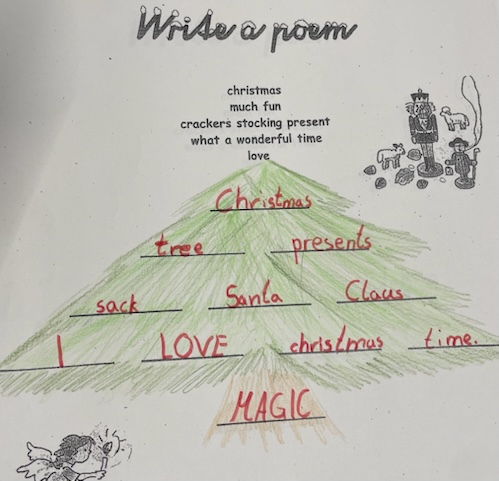 Write a poem
christmas
much fun
crackers stocking present
what a wonderful time
love
Christmas
tree presents
sack Santa Claus
I LOVE christmas time.
MAGIC